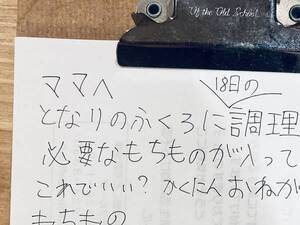 Of the Old School
ママへ
18日の
となりのふくろに調理
必要なもちものが入って
これでいい？かくにんおねが
もちもの